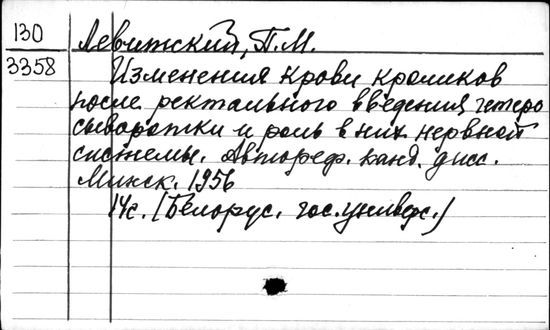 130
3358
Левитский, П.М.
Изменения крови кроликов
после ректального введения гетеро
сыворотки и роль в них нервной
системы. Автореф. канд. дисс.
Минск. 1956
14с. (Белорус. гос. универс.)